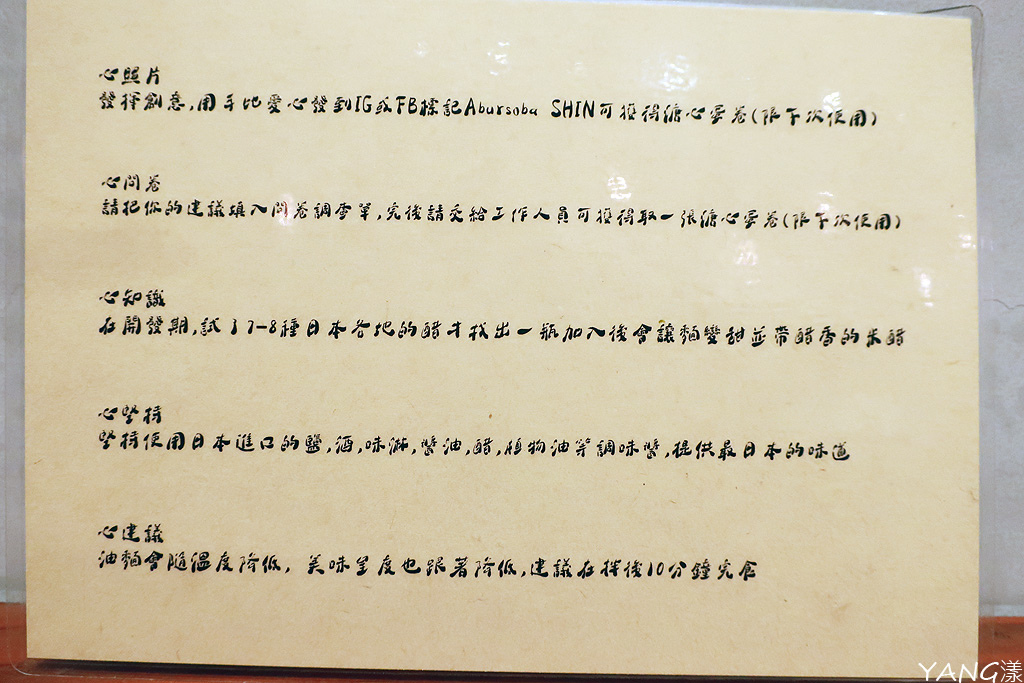 心照片
發揮創意,用手比愛心發到IG或FB標記Abursoba SHIN可獲得溏心蛋卷(限下次使用)
心問卷
請把你的建議填入問卷調查單,完後請交給工作人員可獲得取一張溏心蛋卷(限下次使用)
心知識
在開發期,試了7-8種日本各地的醋才找出一瓶加入後會讓麵變甜並帶醋香的米醋
心堅持
堅持使用日本進口的鹽,酒,味淋,醬油,醋,植物油等調味醬,提供最日本的味道
心建議
油麵會隨溫度降低, 美味呈度也跟著降低,建議在拌後10分鐘完食
YANG漾